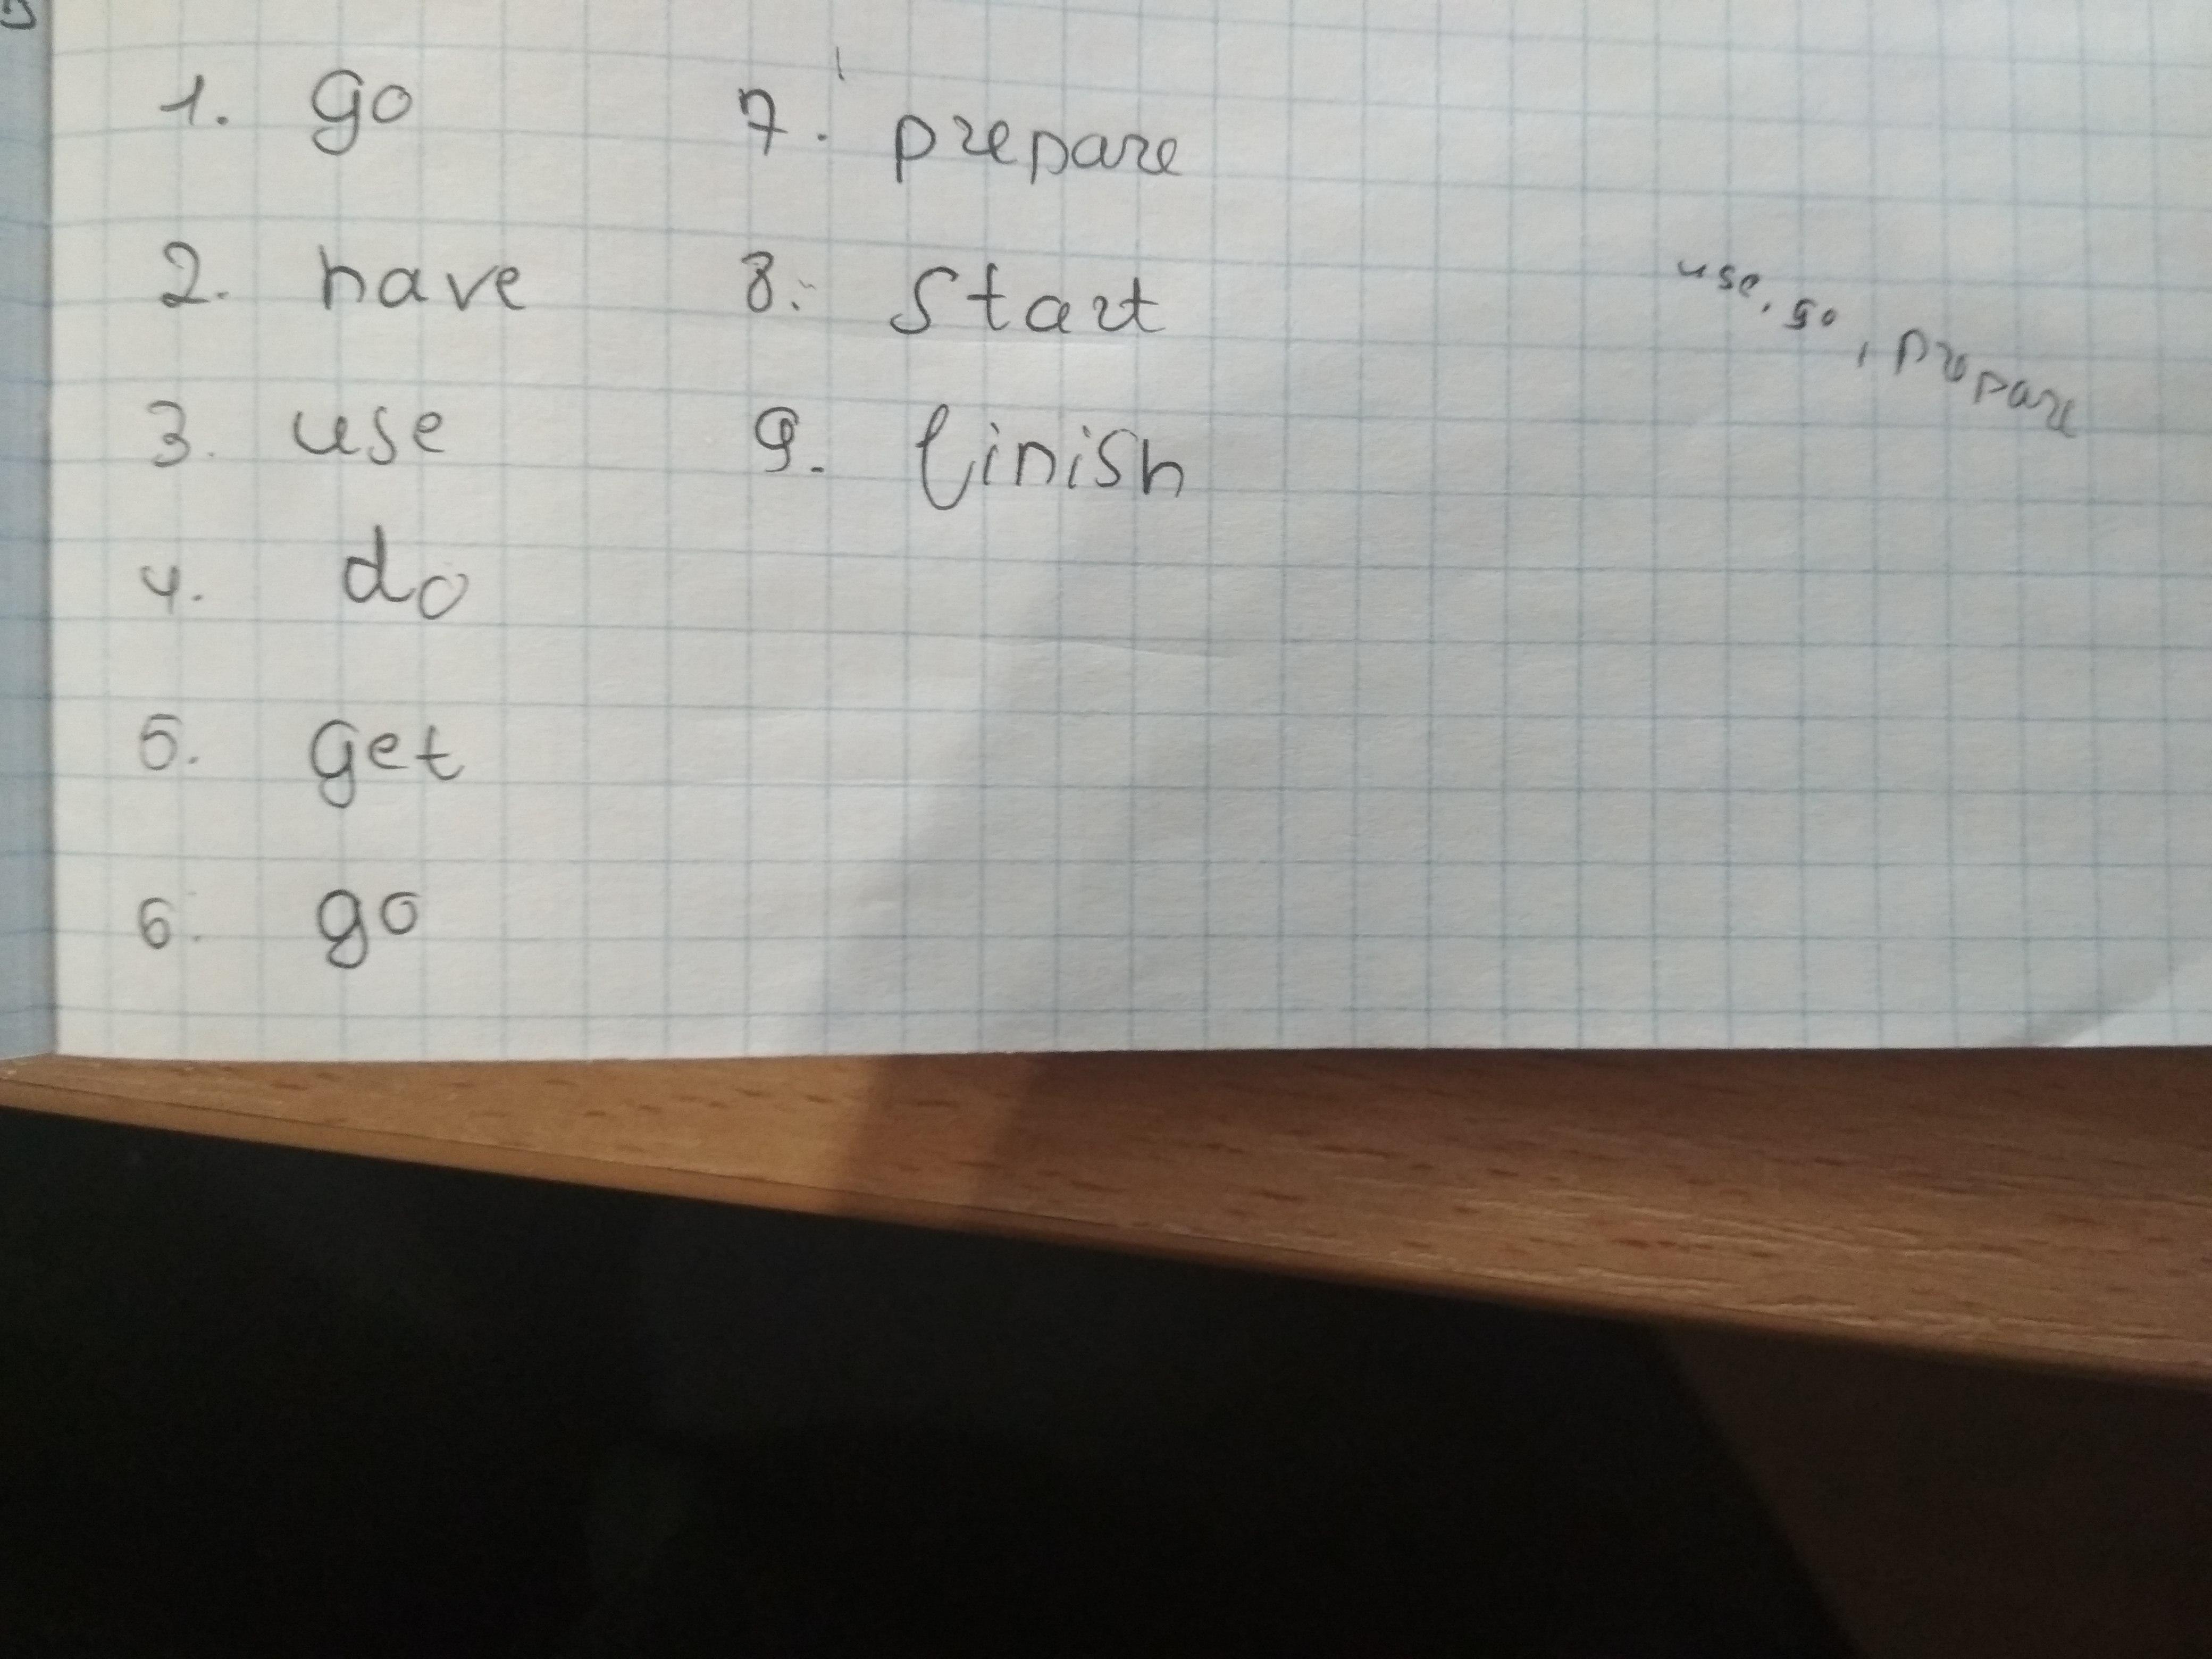 1. go
2. have
3. use
4. do
5. get
6. go
7. prepare
8. start
9. finish
use, go, prepare